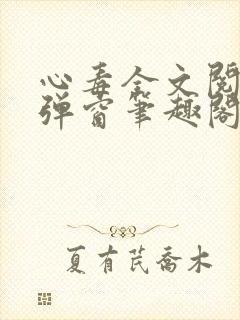 心毒全文阅
弹窗笔趣阁
夏有芪乔木